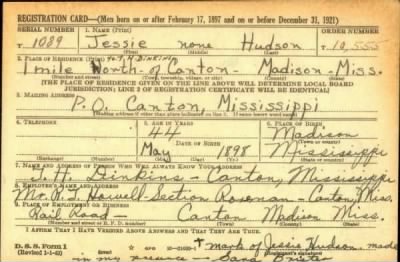 REGISTRATION CARD—(Men born on or after February 17, 1897 and on or before December 31, 1921)
SERIAL NUMBER 1. NAME (Print) ORDER NUMBER
T 1089 Jessie none Hudson T 10,555
(First) (Middle) (Last)
2. PLACE OF RESIDENCE (Print)
1 mile North of Canton - Madison - Miss.
(Number and street) (Town, township, village, or city) (County) (State)
[THE PLACE OF RESIDENCE GIVEN ON THE LINE ABOVE WILL DETERMINE LOCAL BOARD
JURISDICTION; LINE 2 OF REGISTRATION CERTIFICATE WILL BE IDENTICAL]
3. MAILING ADDRESS
P.O. Canton, Mississippi
[Mailing address if other than place indicated on line 2. If same insert word same]
4. TELEPHONE 5. AGE IN YEARS 6. PLACE OF BIRTH
44 Madison
DATE OF BIRTH (Town or county)
May 1898 Mississippi
(Exchange) (Number) (Mo.) (Day) (Yr.) (State or country)
7. NAME AND ADDRESS OF PERSON WHO WILL ALWAYS KNOW YOUR ADDRESS
T. H. Dinkins - Canton, Mississippi
8. EMPLOYER'S NAME AND ADDRESS
Mr. Howell Section - Canton, Miss.
Rail Road - Canton Madison Miss.
(Number and street or R. F. D. number) (Town) (County) (State)
I AFFIRM THAT I HAVE VERIFIED ABOVE ANSWERS AND THAT THEY ARE TRUE.
D. S. S. Form 1
(Revised 1-1-42) (over) mark of Jessie Hudson. made
(Registrant's signature)
in my presence - Sara